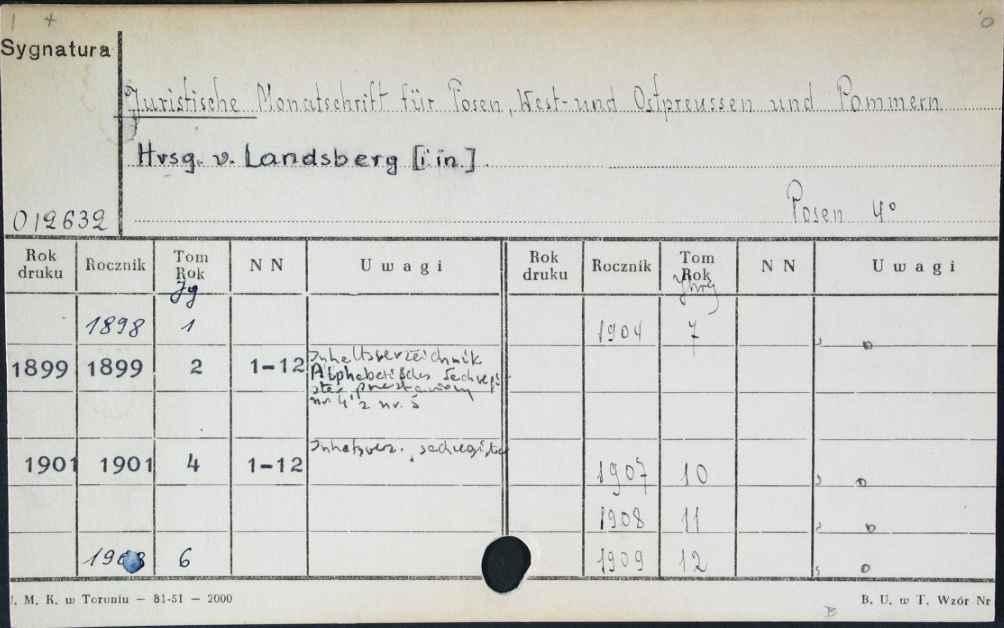 Sygnatura
Juristische Monatschrift für Posen, West- und Ostpreussen und Pommern
Hrsg. v. Landsberg [i in.]
Posen 4°
012632
Rok druku Rocznik Tom Rok NN Uwagi Rok druku Rocznik Tom Rok NN Uwagi
Jg
1898 1 1904 7
1899 1899 2 1-12 Inhaltsverzeichnis
Alphabetisches Sachregi
ster
nr. 4 z nr. 5
1901 1901 4 1-12 Inhaltsverz., sachregister 1907 10
1908 11
1903 6 1909 12
J. M. K. w Toruniu — 81-51 — 2000 B. U. w T. Wzór Nr